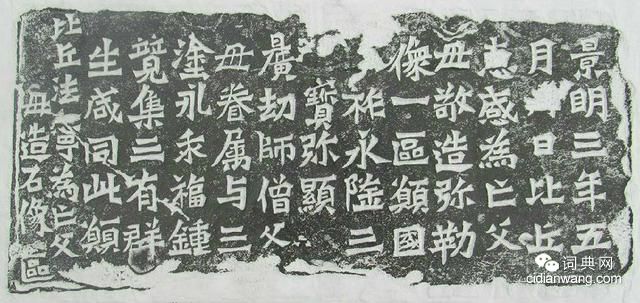 景明三年五
月日比丘
惠感為亡父
母敬造弥勒
像一區願國
祚永隆三
寶弥顯
曠劫師僧父
母眷属与三
塗永乖福鍾
競集三有群
生咸同此願
比丘法寧為亡父
母造石像一區
词典网
cidianwang.com